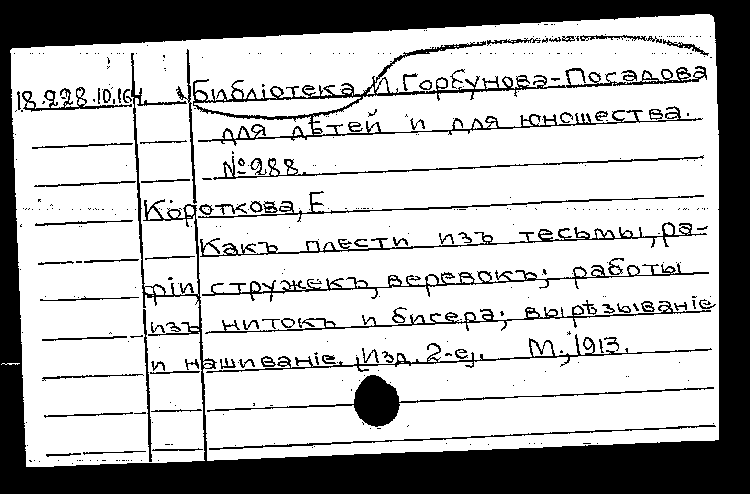 18.228.10.164. Библіотека И. Горбунова-Посадова
для дѣтей и для юношества.
№288.
Короткова, Е.
Какъ плести изъ тесьмы, ра-
фіи, стружекъ, веревокъ; работы
изъ нитокъ и бисера; вырѣзываніе
и нашиваніе. Изд. 2-е. М., 1913.